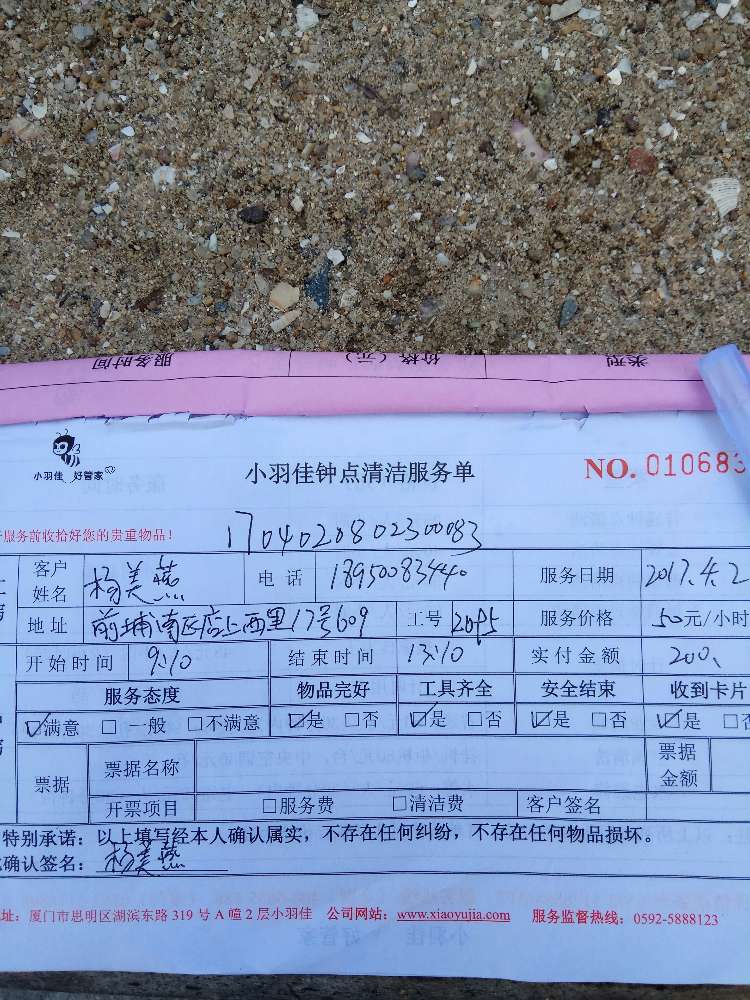 服务时间 价格（元） 类型
小羽佳 好管家
小羽佳钟点清洁服务单 NO. 010683
服务前收拾好您的贵重物品！
1704020802300083
客户姓名 杨美燕 电话 18950083440 服务日期 2017.4.2
地址 前埔南区店上西里17号609 工号 服务价格 50元/小时
开始时间 9:10 结束时间 13:10 实付金额 200
服务态度 物品完好 工具齐全 安全结束 收到卡片
☑满意 □一般 □不满意 ☑是 □否 ☑是 □否 ☑是 □否 ☑是 □否
票据 票据名称 票据金额
开票项目 □服务费 □清洁费 客户签名
特别承诺：以上填写经本人确认属实，不存在任何纠纷，不存在任何物品损坏。
确认签名：杨美燕
址：厦门市思明区湖滨东路 319 号 A 幢 2 层小羽佳 公司网站：www.xiaoyujia.com 服务监督热线：0592-5888123